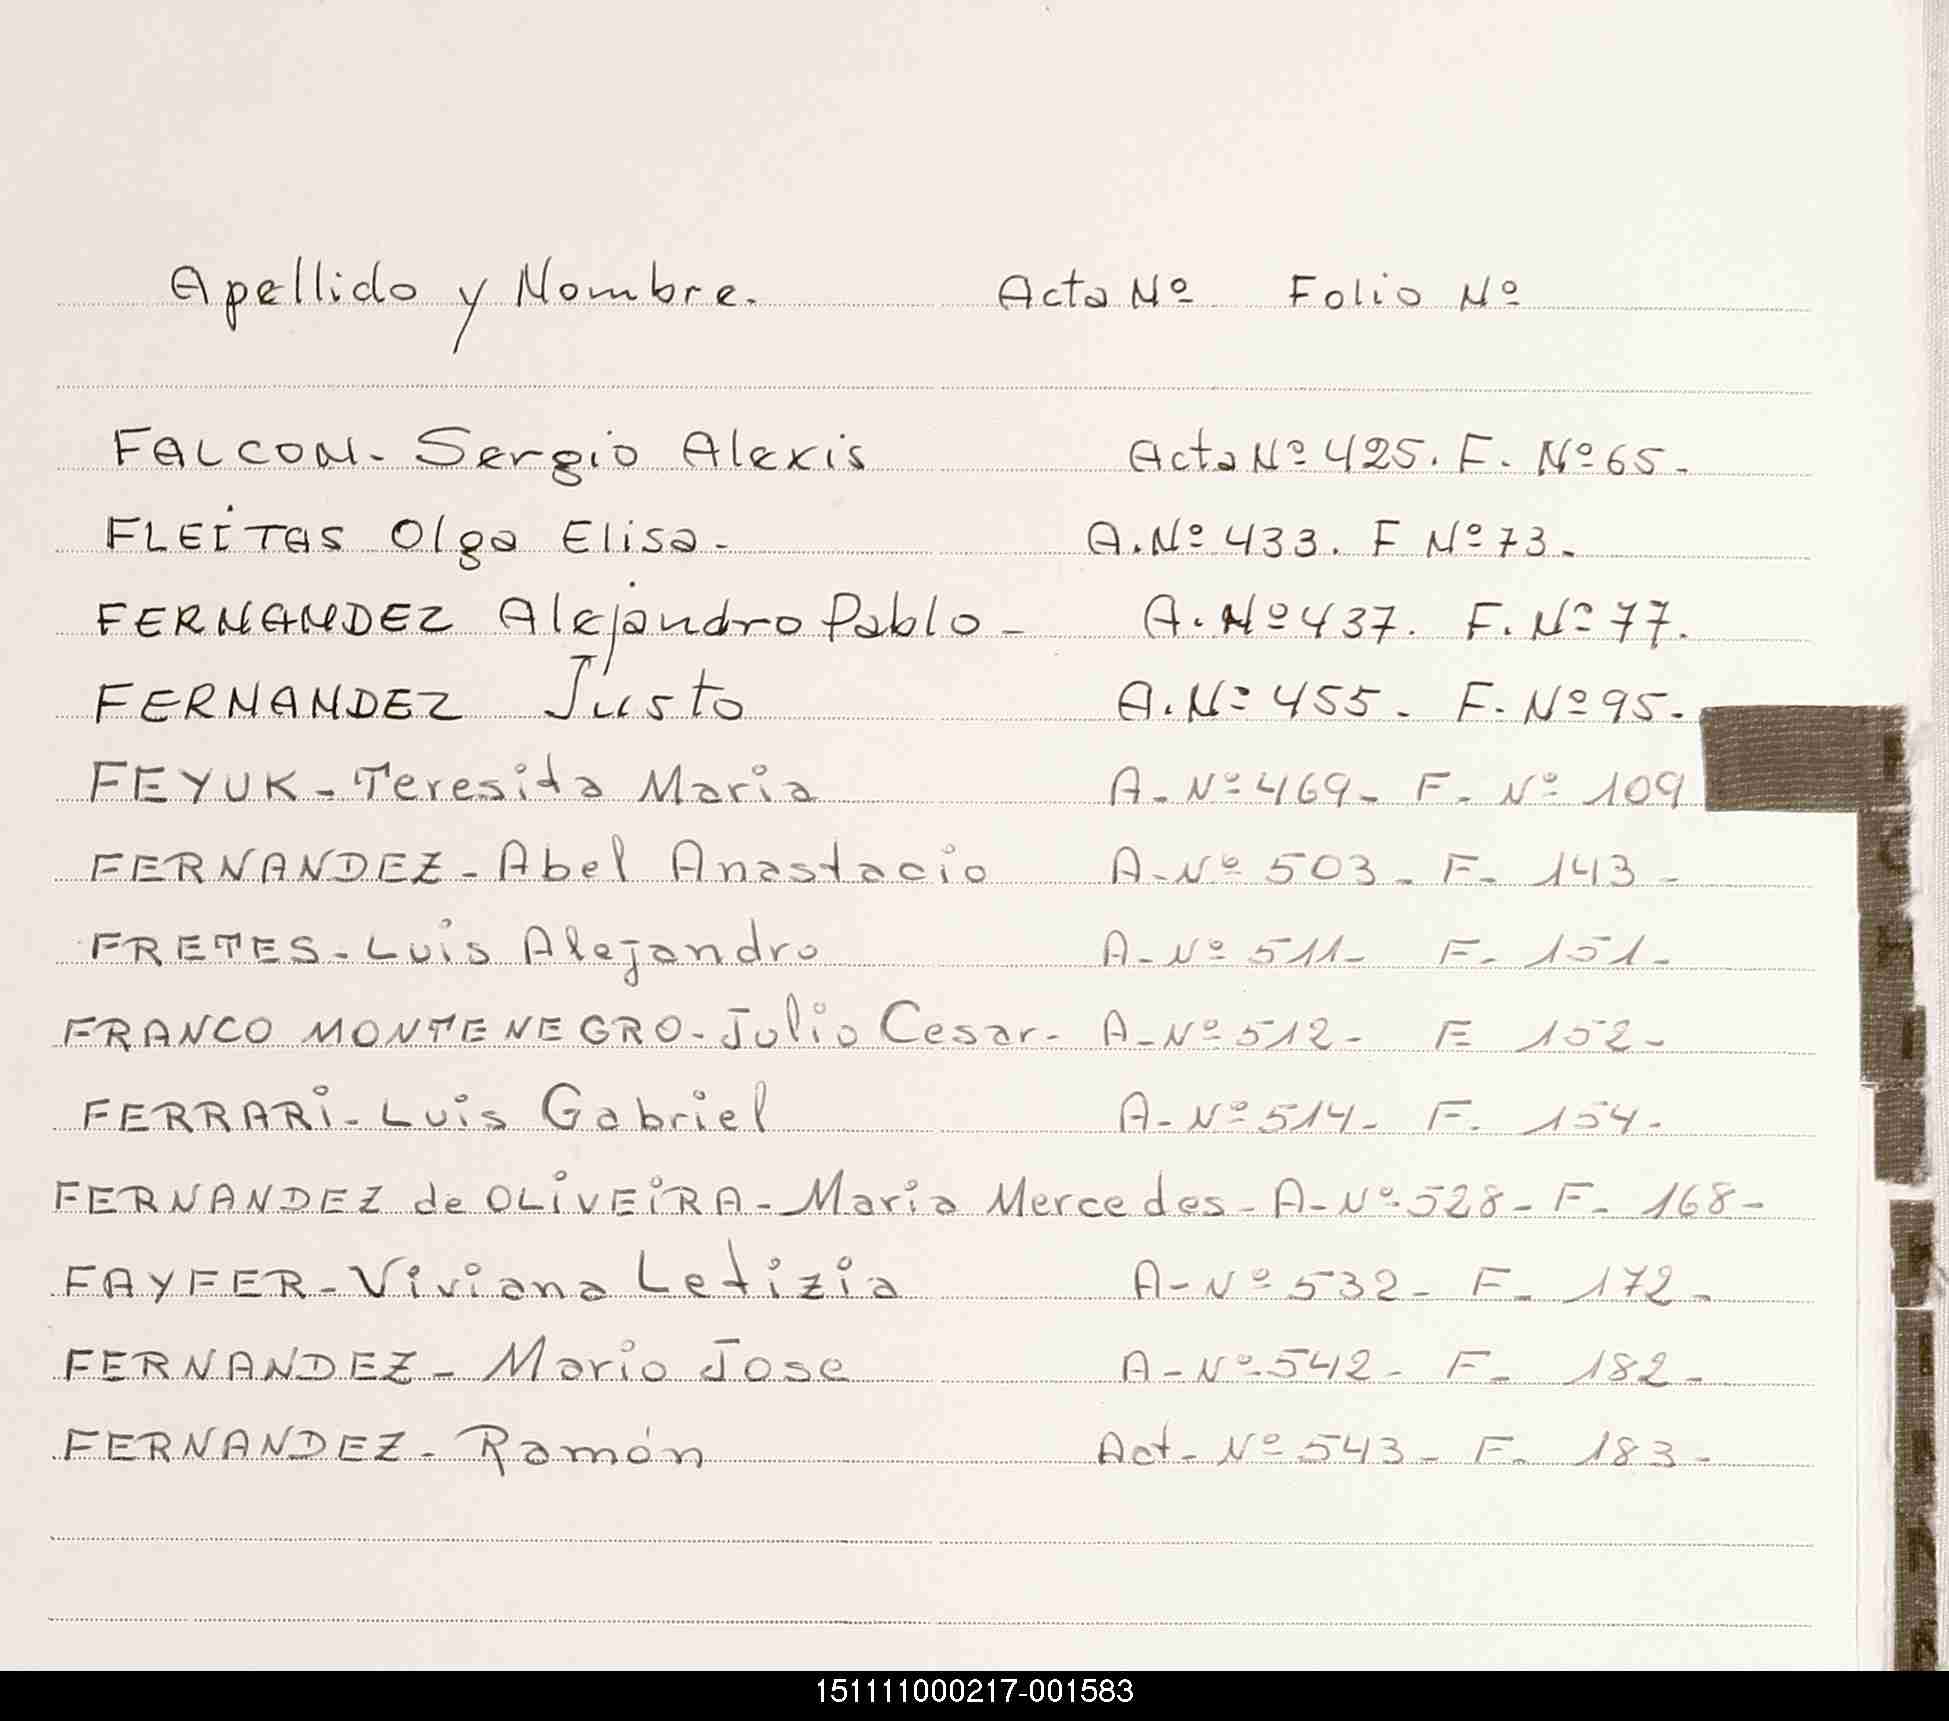 Apellido y Nombre. Acta Nº Folio Nº
FALCON- Sergio Alexis Acta Nº 425. F. Nº 65-
FLEITAS Olga Elisa- A. Nº 433. F Nº 73-
FERNANDEZ Alejandro Pablo- A. Nº 437. F. Nº 77.
FERNANDEZ Justo A. Nº 455- F. Nº 95-
FEYUK- Teresita Maria A- Nº 469- F- Nº 109
FERNANDEZ- Abel Anastacio A- Nº 503- F- 143-
FRETES- Luis Alejandro A- Nº 511- F- 151-
FRANCO MONTENEGRO- Julio Cesar- A- Nº 512- F 152-
FERRARI- Luis Gabriel A- Nº 514- F- 154-
FERNANDEZ de OLIVEIRA- Maria Mercedes- A- Nº 528- F- 168-
FAYFER- Viviana Letizia A- Nº 532- F- 172-
FERNANDEZ- Mario Jose A- Nº 542- F- 182-
FERNANDEZ- Ramón Act- Nº 543- F- 183-
151111000217-001583